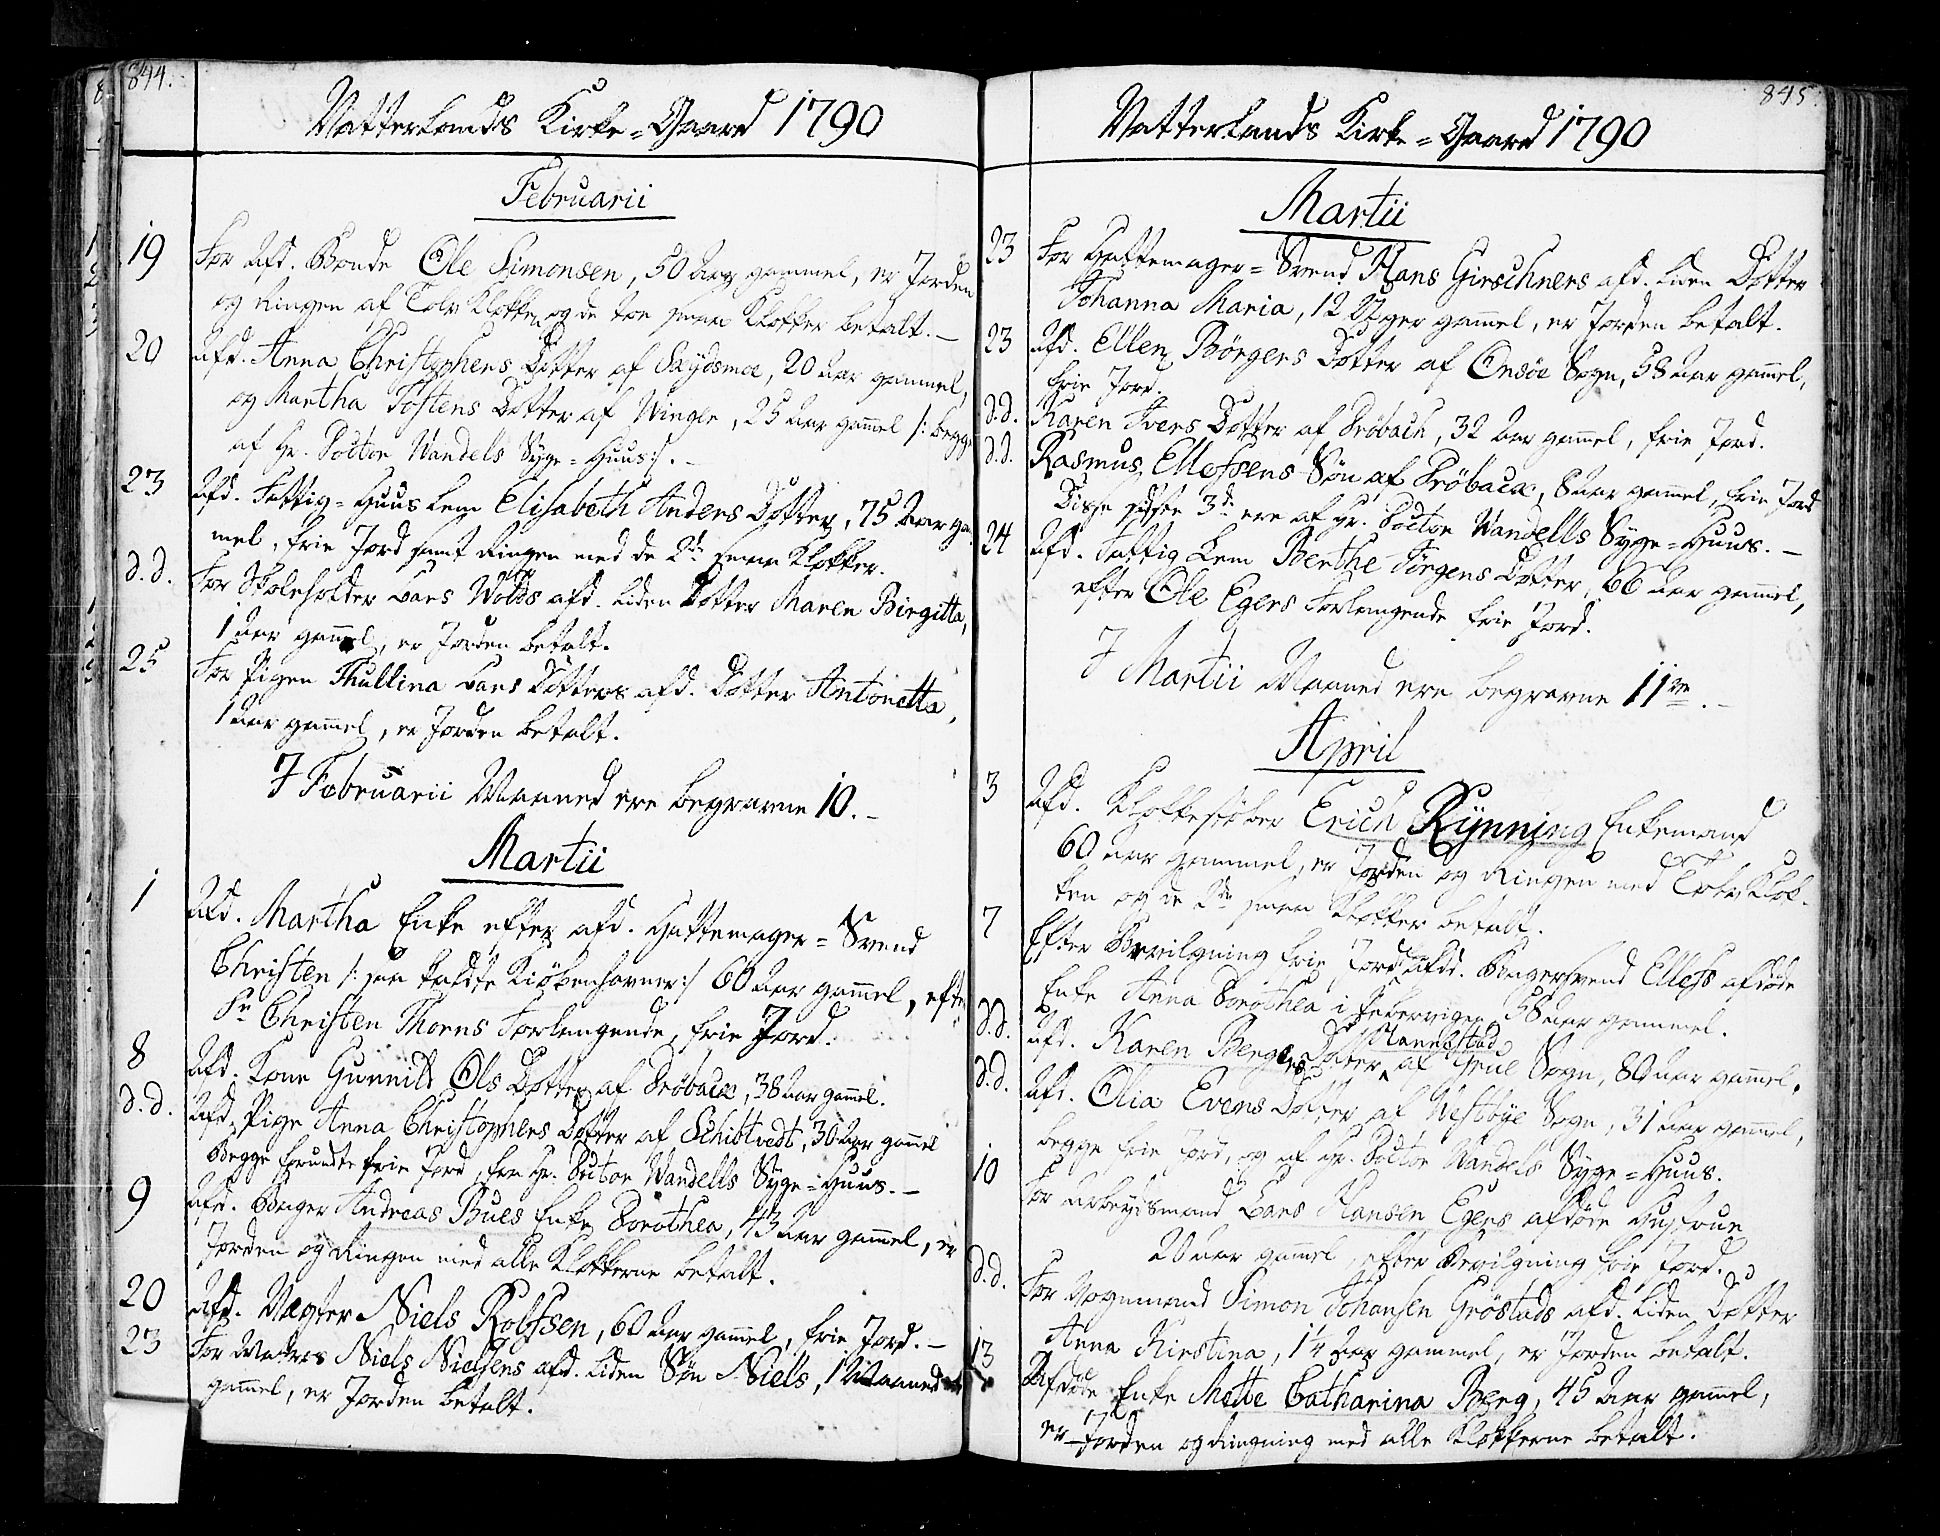 844.
Vatterlands Kirke=Gaard 1790
Februarii
19 For Afd. Bonde Ole Simonsen, 50 Aar gammel, er Jorden
og Ringen af Tolv Klokken og de toe smaa Klokker betalt.
20 Afd. Anna Christophers Dotter af Sæydsmoe, 20 Aar gammel,
og Martha Tostens Dotter af Winger, 25 Aar gam̄el /: begge
af Hr. Doctor Wandels Syge=Huus:/.
23 Afd. Fattig=Huus Lem Elisabeth Anders Dotter, 75 Aar gam̄
mel, frie Jord samt Ringen med de 2de smaa Klokker.
d.d. For Skoleholder Lars Wolds afd. liden Dotter Maren Birgitta,
1 Aar gam̄el, er Jorden betalt.
25 For Pigen Thullina Lars Dotters afd. Dotter Antonetta,
1 Aar gam̄el, er Jorden betalt.
I Februarii Maaned ere begravne 10.
Martii
1 Afd. Martha Enke efter afd. Hattemager=Svend
Christen /: saa kaldte Kiöbenhavner:/ 60 Aar gam̄el, efter
Hr Christen Thorns Forlangende, frie Jord.
8 Afd. Kone Gunnild Ols Dotter af Dröback, 38 Aar gam̄el.
d.d. Afd. Pige Anna Christophers Dotter af Schibtvedt, 30 Aar gam̄el
Begge frie Jord, fra Hr. Doctor Wandells Syge=Huus.
9 Afd. Bager Andreas Bues Enke Dorothea, 43 Aar gam̄el, er
Jorden og Ringen med alle Klokkerne betalt.
20 Afd. Vægter Niels Rolfsen, 60 Aar gam̄el, frie Jord.
23 For Niels Nielsens afd. liden Søn Niels, 1 Maaned
gam̄el, er Jorden betalt.
845.
Vatterlands Kirke=Gaard 1790
Martii
23 For Hattemager=Svend Hans Girschners afd. liden Dotter
Johanna Maria, 12 Uger gam̄el, er Jorden betalt.
23 Afd. Ellen Börgers Dotter af Onsöe Sogn, 58 Aar gam̄el,
frie Jord.
d.d. Karen Ivers Dotter af Dröbach, 32 Aar gam̄el, frie Jord.
d.d. Rasmus Ellefsens Søn af Dröback, 8 Aar gam̄el, frie Jord
Disse sidste 3de ere af Hr. Doctor Wandells Syge=Huus.
24 Afd. Fattig Lem Berthe Jörgens Dotter, 66 Aar gam̄el,
efter Ole Egers Forlangende frie Jord.
I Martii Maaned ere begravne 11ve.
April
3 Afd. Klokkestöber Erich Rÿnning Enkemand
60 Aar gammel, er Jorden og Ringen med Tolv Klok-
ken og de 2de smaa Klokker betalt.
7 Efter Bevilgning frie Jord Afdd. Bagersvend Ellefs afdöde
Enke Anna Dorothea i Pebervigen 58 Aar gammel.
d.d. Afd. Karen Bergers Dotter af Grue Sogn, 80 Aar gam̄el.
d.d. Afd. Olia Evens Dotter af Westbÿe Sogn, 31 Aar gam̄el,
begge frie Jord, og af Hr. Doctor Wandels Syge=Huus.
10 For Arbeydsmand Lars Hansen Egers afdöde Hustrue
20 Aar gam̄el, efter Bevilgning frie Jord.
d.d. For Vognmand Simon Johansen Gröstads afd. liden Dotter
Anna Kirstina, 1¼ Aar gammel, er Jorden betalt.
13 Afdöde Enke Mette Catharina Berg, 45 Aar gam̄el,
er Jorden og Ringning med alle Klokkerne betalt.